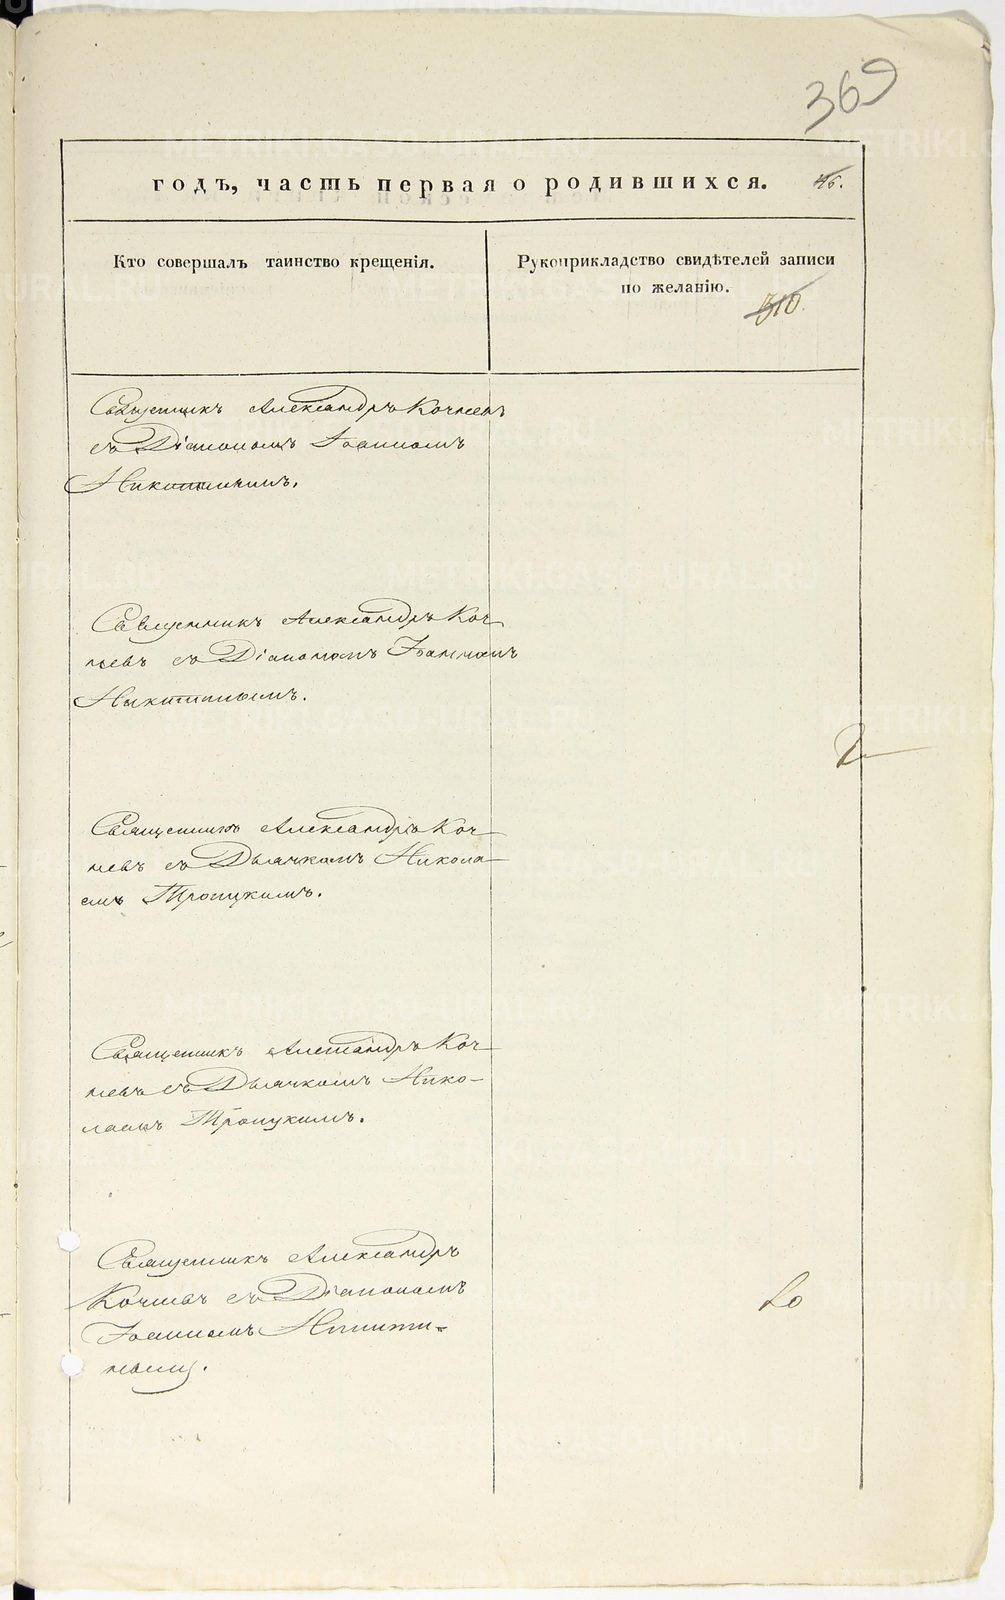 369
годъ, часть первая о родившихся.
Кто совершалъ таинство крещенія.
Рукоприкладство свидѣтелей записи
по желанію.
310.
Священникъ Александръ Кочневъ
съ Діакономъ Іоанномъ
Никитинымъ.
Священникъ Александръ Коч
невъ съ Діакономъ Іоанномъ
Никитинымъ.
Священникъ Александръ Коч-
невъ съ Дьячкомъ Никола-
емъ Троицкимъ.
Священникъ Александръ Коч-
невъ съ Дьячкомъ Нико-
лаемъ Троицкимъ.
Священникъ Александръ
Кочневъ съ Діакономъ
Іоанномъ Никити-
нымъ.
METRIKI.GASO-URAL.RU